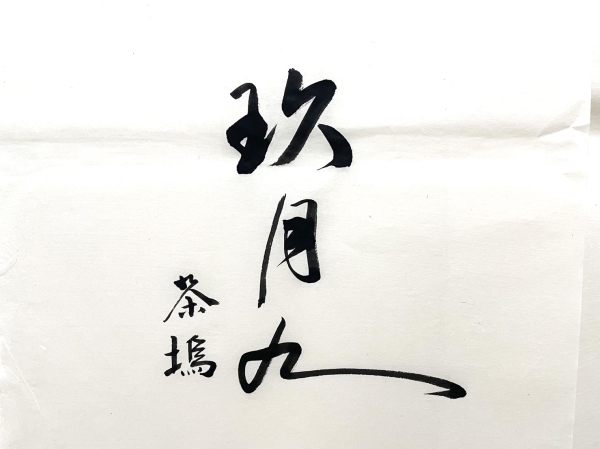 玖月九
茶塢